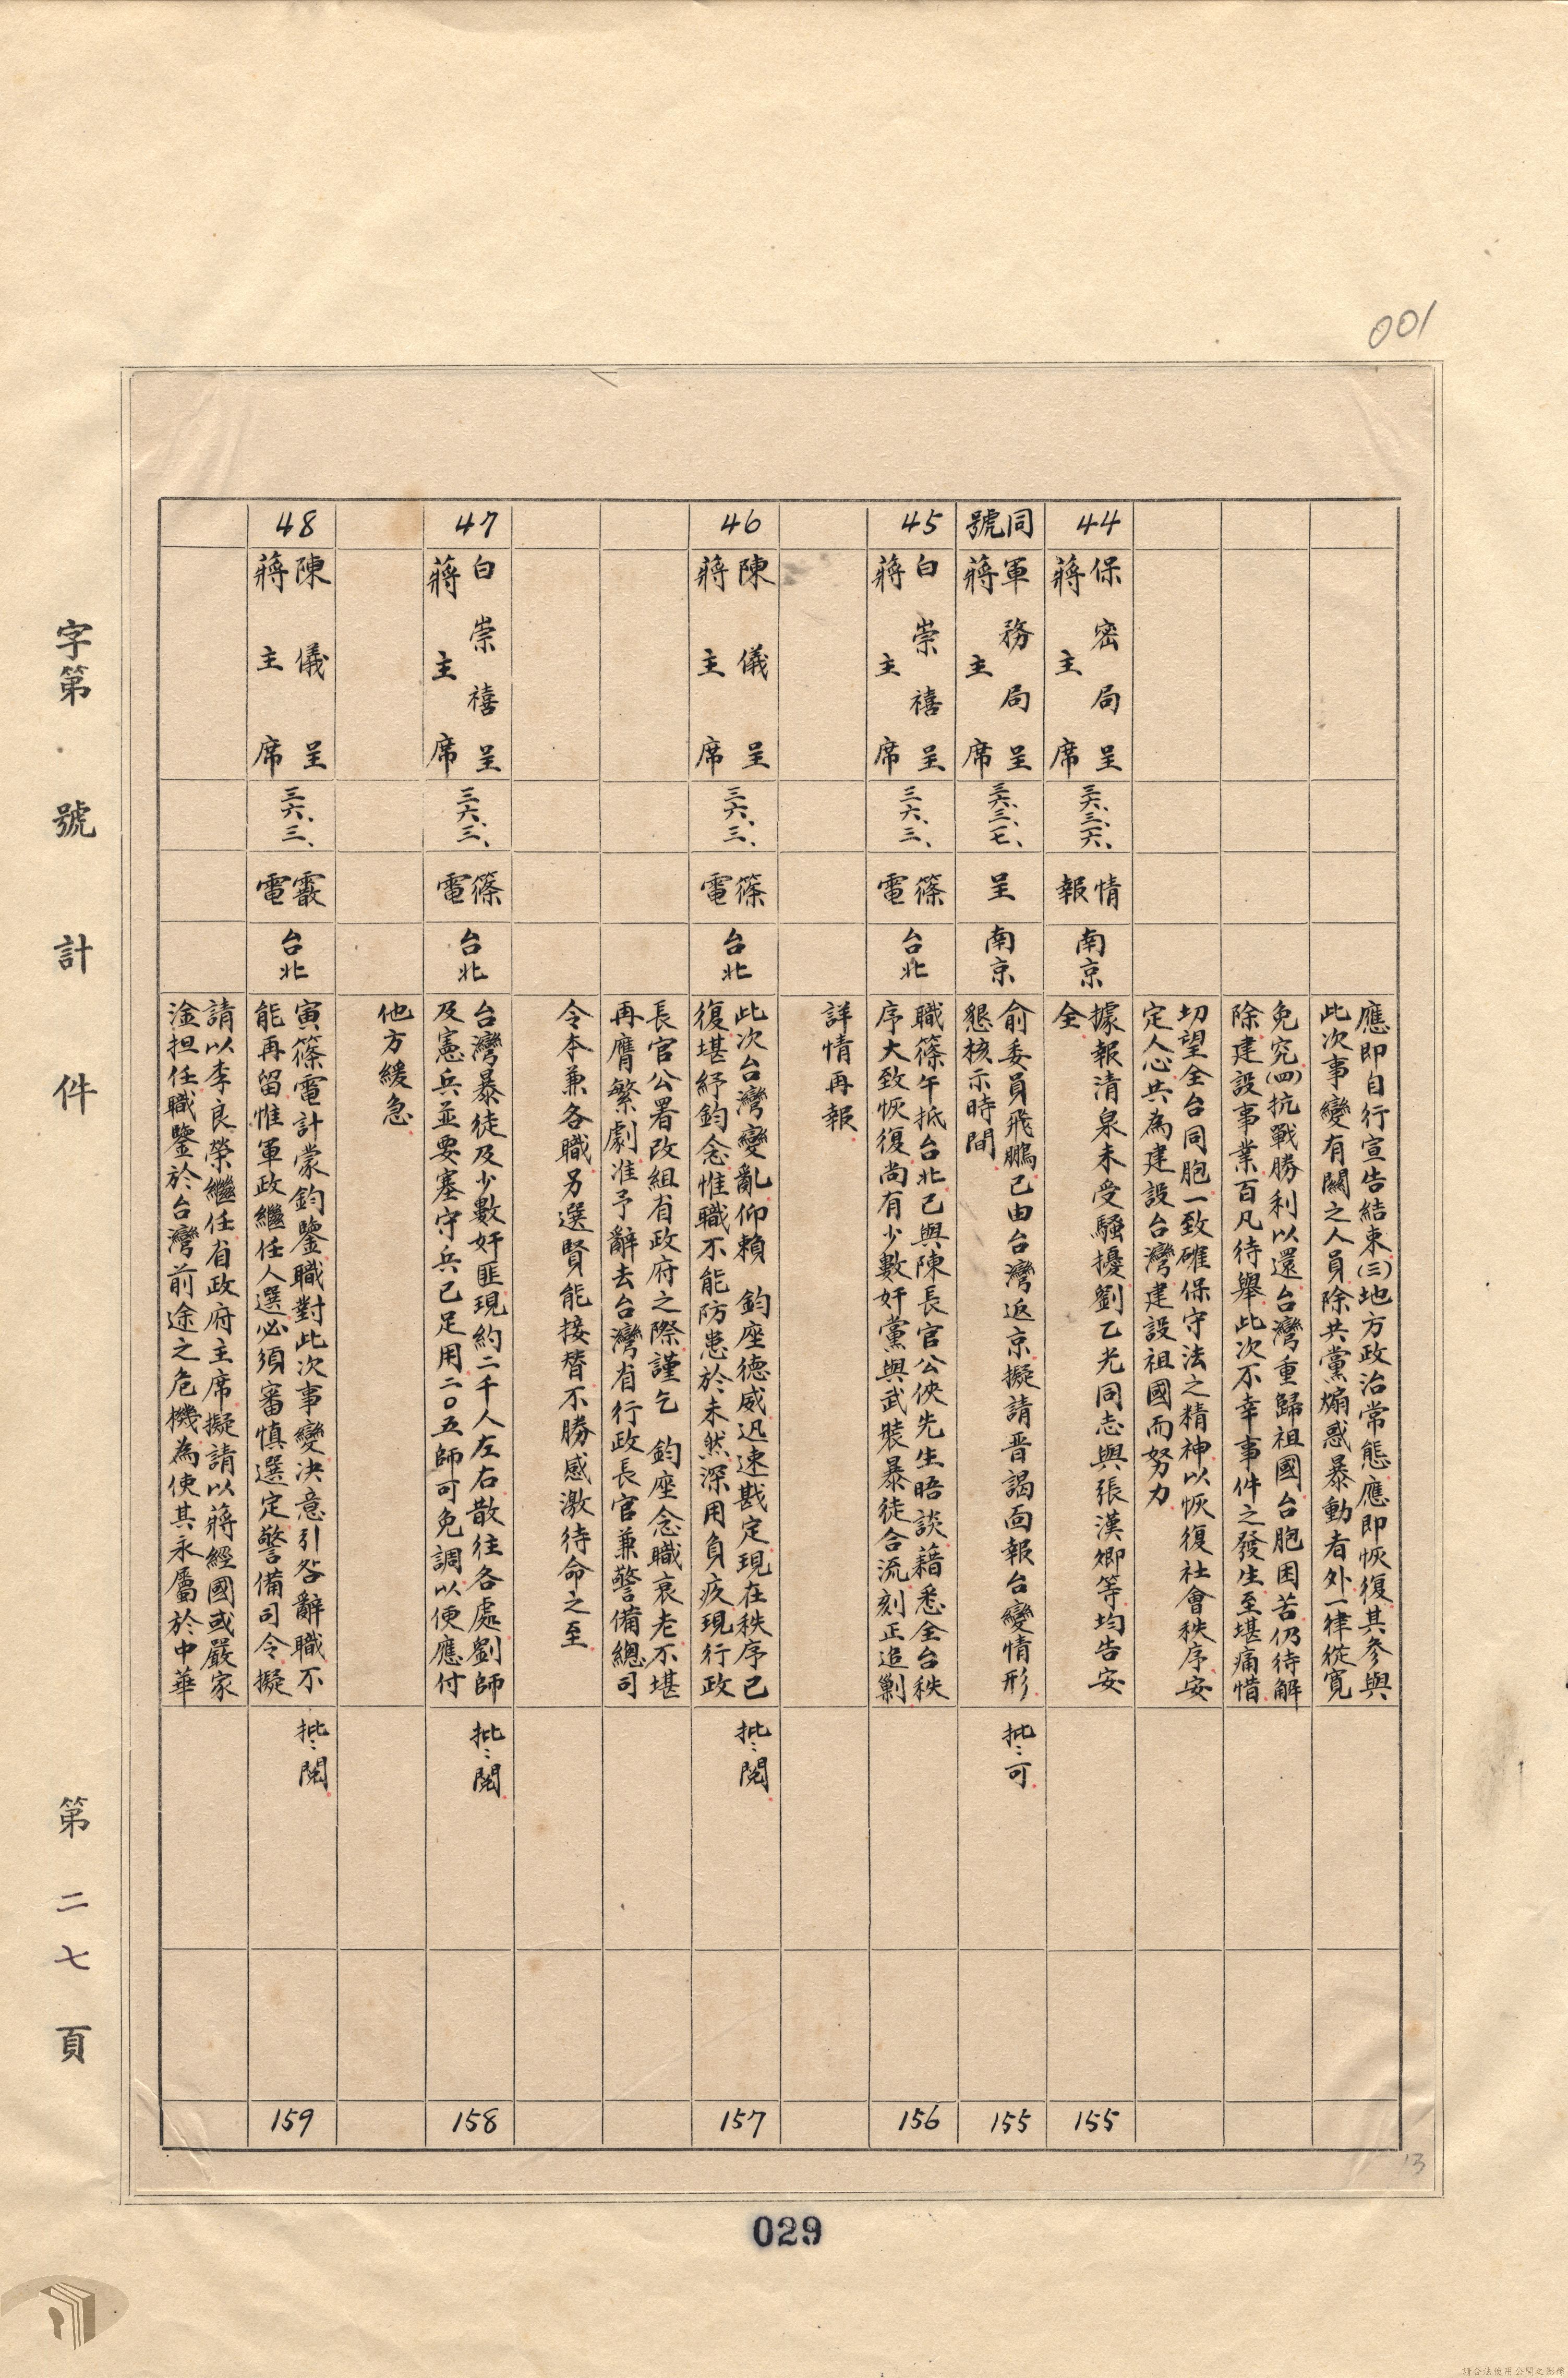 001
應即自行宣告結束㈢地方政治常態應即恢復其參與
此次事變有關之人員除共黨煽惑暴動者外一律從寬
免究㈣抗戰勝利以還台灣重歸祖國台胞困苦仍待解
除建設事業百凡待舉此次不幸事件之發生至堪痛惜
切望全台同胞一致確保守法之精神以恢復社會秩序安
定人心共為建設台灣建設祖國而努力
44
保密局呈
蔣主席
三六、三、六、
情
報
南京
據報清泉未受騷擾劉乙光同志與張漢卿等均告安
全
155
同
號
軍務局呈
蔣主席
三六、三、七、
呈
南京
俞委員飛鵬已由台灣返京擬請晋謁面報台變情形
懇核示時間
批：可
155
45
白崇禧呈
蔣主席
三六、三、
篠
電
台北
職篠午抵台北已與陳長官公俠先生晤談藉悉全台秩
序大致恢復尚有少數奸黨與武裝暴徒合流刻正追剿
詳情再報
156
46
陳儀呈
蔣主席
三六、三、
篠
電
台北
此次台灣變亂仰賴　鈞座德威迅速戡定現在秩序已
復堪紓鈞念惟職不能防患於未然深用負疚現行政
長官公署改組省政府之際謹乞　鈞座念職衰老不堪
再膺繁劇准予辭去台灣省行政長官兼警備總司
令本兼各職另選賢能接替不勝感激待命之至
批：閱
157
47
白崇禧呈
蔣主席
三六、三、
篠
電
台北
台灣暴徒及少數奸匪現約二千人左右散往各處劉師
及憲兵並要塞守兵已足用二〇五師可免調以便應付
他方緩急
批：閱
158
48
陳儀呈
蔣主席
三六、三、
霰
電
台北
寅篠電計蒙鈞鑒職對此次事變决意引咎辭職不
能再留惟軍政繼任人選必須審慎選定警備司令擬
請以李良榮繼任省政府主席擬請以蔣經國或嚴家
淦担任職鑒於台灣前途之危機為使其永屬於中華
批：閱
159
字第　號計　件
第二七頁
13
029
請合法使用公開之影像